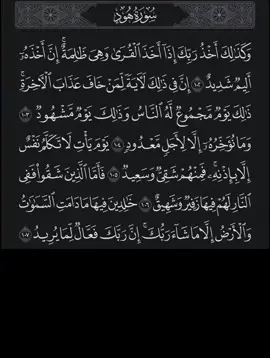 سُورَةُ هُودٍ
وَكَذَٰلِكَ أَخْذُ رَبِّكَ إِذَا أَخَذَ ٱلْقُرَىٰ وَهِيَ ظَٰلِمَةٌ ۚ إِنَّ أَخْذَهُۥٓ
أَلِيمٌ شَدِيدٌ ۝١٠٢ إِنَّ فِي ذَٰلِكَ لَءَايَةً لِّمَنْ خَافَ عَذَابَ ٱلْءَاخِرَةِ ۚ
ذَٰلِكَ يَوْمٌ مَّجْمُوعٌ لَّهُ ٱلنَّاسُ وَذَٰلِكَ يَوْمٌ مَّشْهُودٌ ۝١٠٣
وَمَا نُؤَخِّرُهُۥٓ إِلَّا لِأَجَلٍ مَّعْدُودٍ ۝١٠٤ يَوْمَ يَأْتِ لَا تَكَلَّمُ نَفْسٌ
إِلَّا بِإِذْنِهِۦ ۚ فَمِنْهُمْ شَقِيٌّ وَسَعِيدٌ ۝١٠٥ فَأَمَّا ٱلَّذِينَ شَقُوا۟ فَفِي
ٱلنَّارِ لَهُمْ فِيهَا زَفِيرٌ وَشَهِيقٌ ۝١٠٦ خَٰلِدِينَ فِيهَا مَا دَامَتِ ٱلسَّمَٰوَٰتُ
وَٱلْأَرْضُ إِلَّا مَا شَآءَ رَبُّكَ ۚ إِنَّ رَبَّكَ فَعَّالٌ لِّمَا يُرِيدُ ۝١٠٧